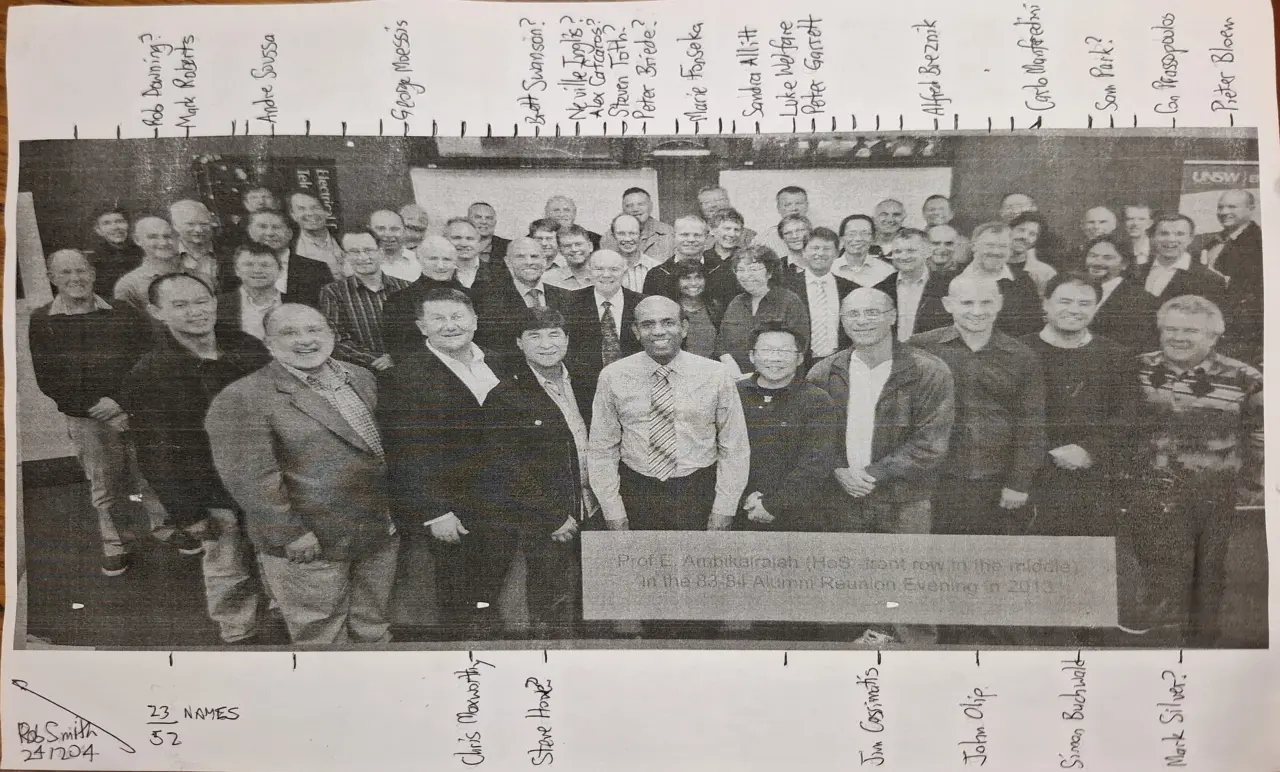 Rob Downing?
Mark Roberts
Andre Sussa
George Moessis
Brett Swanson?
Neville Inglis?
Steven Toth?
Peter Briede?
Marie Fonseka
Sandra Allitt
Luke Welfare
Peter Garrett
Alfred Breznik
Carlo Manfredini
Sam Park?
Con Prassopoulos
Pieter Bloem
Electrical
Tele
UNSW
Prof E. Ambikairajah (HoS, front row in the middle)
in the 83-84 Alumni Reunion Evening in 2013
Chris Maxworthy
Steve Hong?
Jim Cassimatis
John Olip
Simon Buchwald
Mark Silver?
Rob Smith
241204
23 NAMES
52